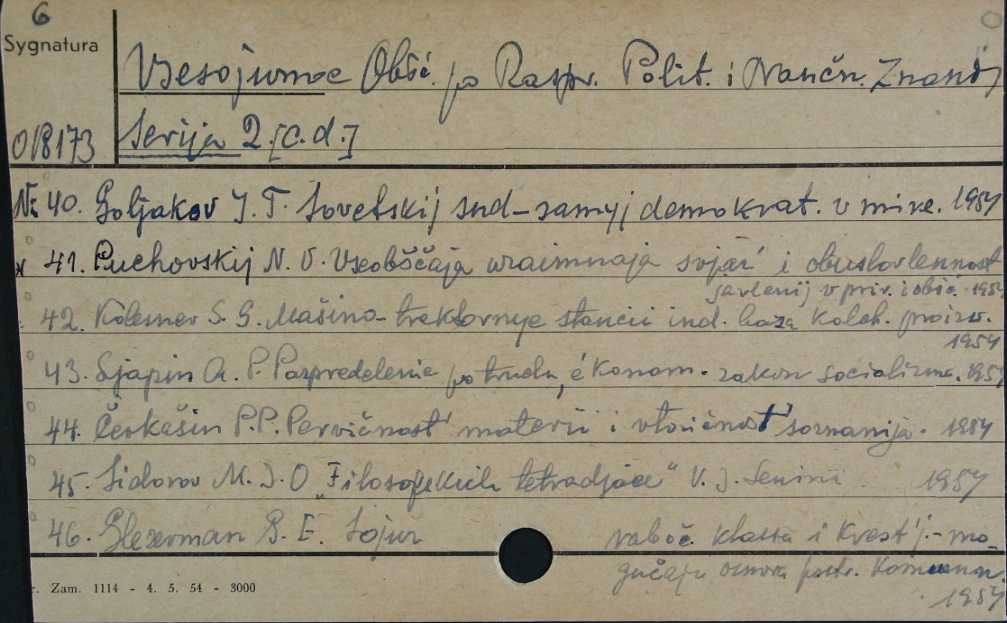 6
Sygnatura
Vsesojuznoe Obšč. po Raspr. Polit. i Naučn. Znanij
018173 Serija 2. [c.d.]
Nr 40. Goljakov I. T. Sovetskij sud - samyj demokrat. v mire. 1954
41. Puchovskij N. V. Vseobščaja vzaimnaja svjaź i obuslovlennost
javlenij v prir. i obšč. 1954
42. Kolesnev S. G. Mašino-traktornye stancii ind. baza kolch. proizv.
1954
43. Ljapin A. P. Raspredelenie po trudu, ékonom. zakon socializma. 1954
44. Čerkašin P.P. Pervičnost' materii i vtoričnost' soznanija. 1954
45. Sidorov M. I. O „Filosofskich tetradjach" V. I. Lenina 1954
46. Glezerman G. E. Sojuz raboč. klassa i krest'j. - mo-
gučaja osnova postr. kommun.
1954
r. Zam. 1114 - 4. 5. 54 - 3000